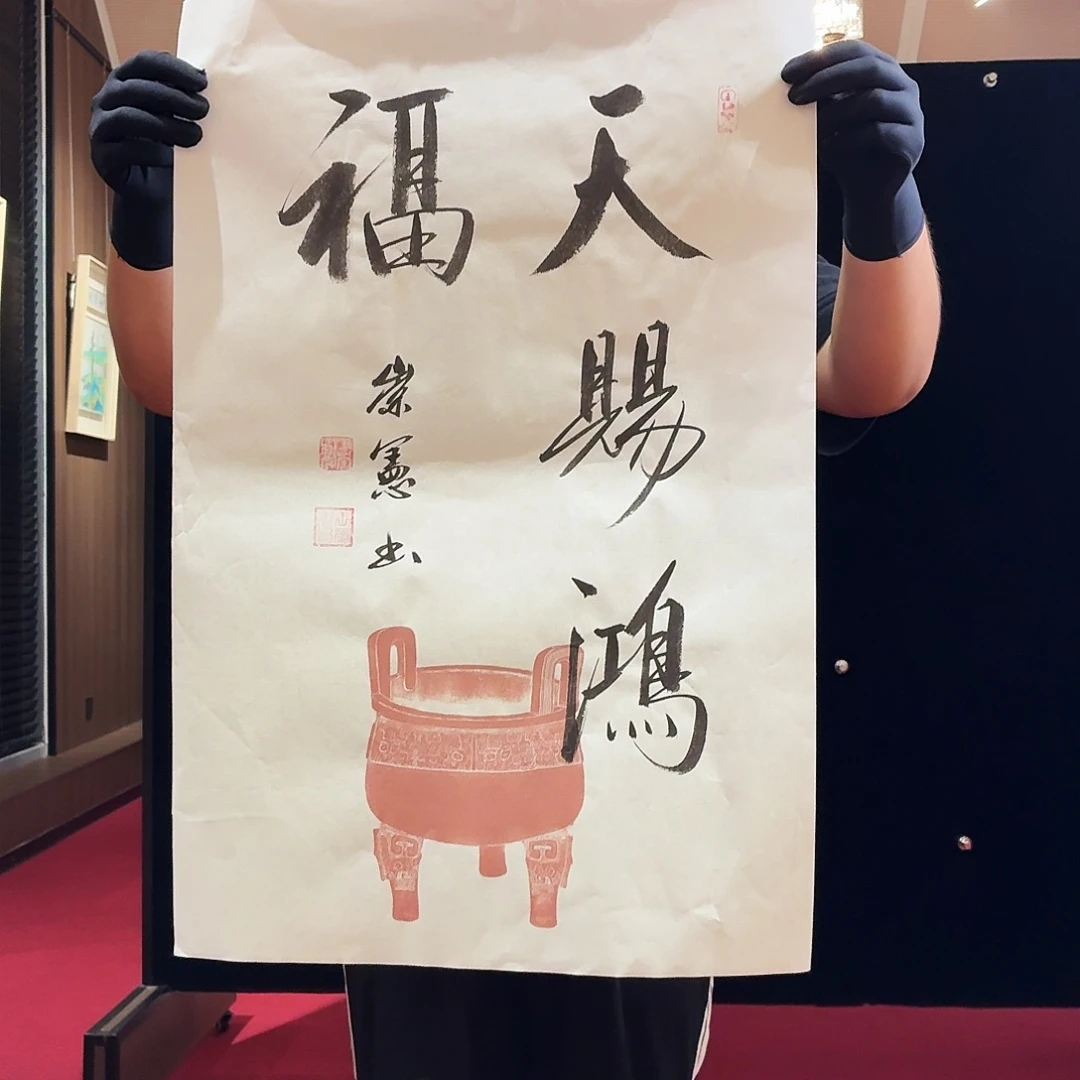 天賜鴻
福
崇憲书